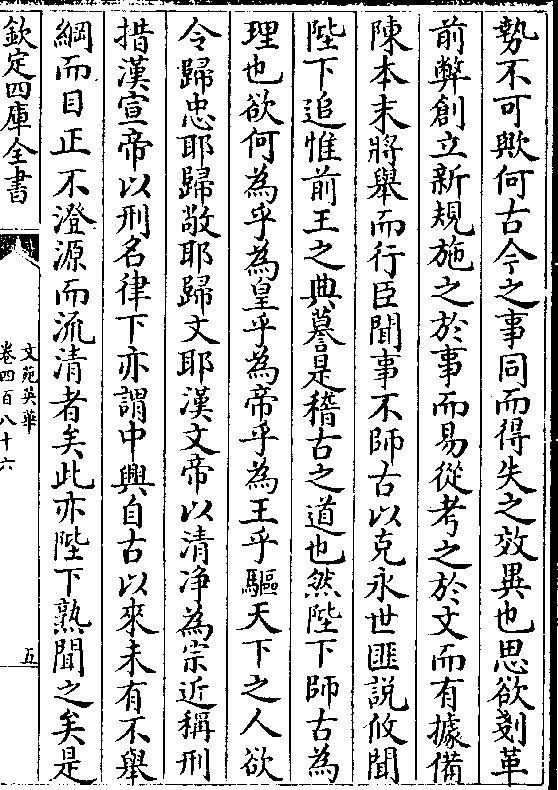 勢不可歟何古今之事同而得失之效異也思欲剗革
前弊創立新規施之於事而易從考之於文而有據備
陳本末將舉而行臣聞事不師古以克永世匪說攸聞
陛下追惟前王之典謩是稽古之道也然陛下師古為
理也欲何為乎為皇乎為帝乎為王乎驅天下之人欲
令歸忠耶歸敬耶歸文耶漢文帝以清净為宗近稱刑
措漢宣帝以刑名律下亦謂中興自古以來未有不舉
綱而目正不澄源而流清者矣此亦陛下熟聞之矣是
欽定四庫全書
文苑英華
卷四百八十六
五